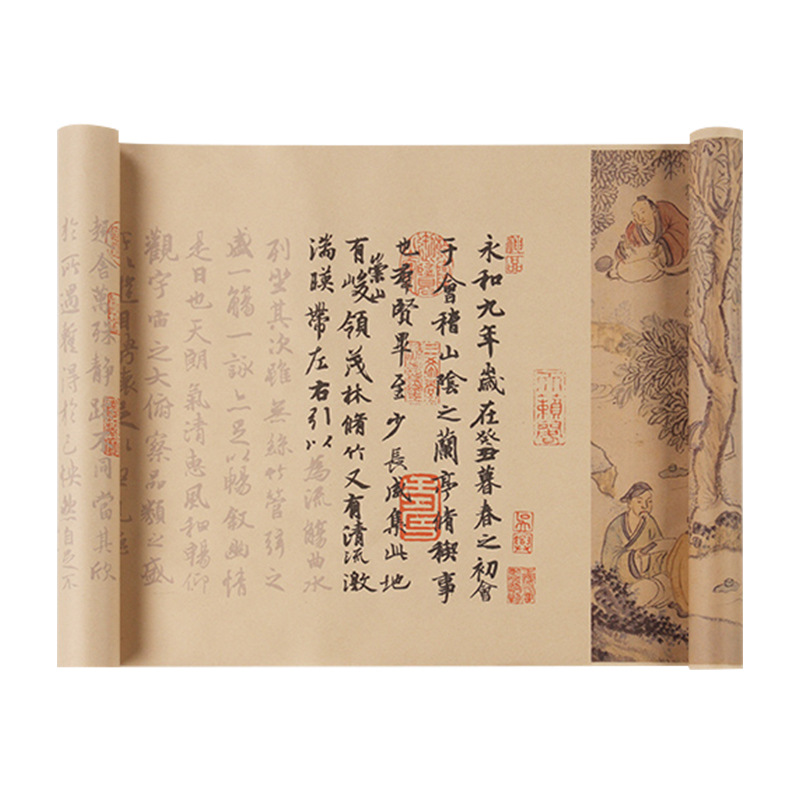 天籟閣
神品
永和九年歲在癸丑暮春之初會
于會稽山陰之蘭亭脩稧事
也羣賢畢至少長咸集此地
有崇山峻領茂林脩竹又有清流激
湍暎帶左右引以為流觴曲水
列坐其次雖無絲竹管弦之
盛一觴一詠亦足以暢敘幽情
是日也天朗氣清惠風和暢仰
觀宇宙之大俯察品類之盛
趣舍萬殊靜躁不同當其欣
於所遇蹔得於己怏然自足不